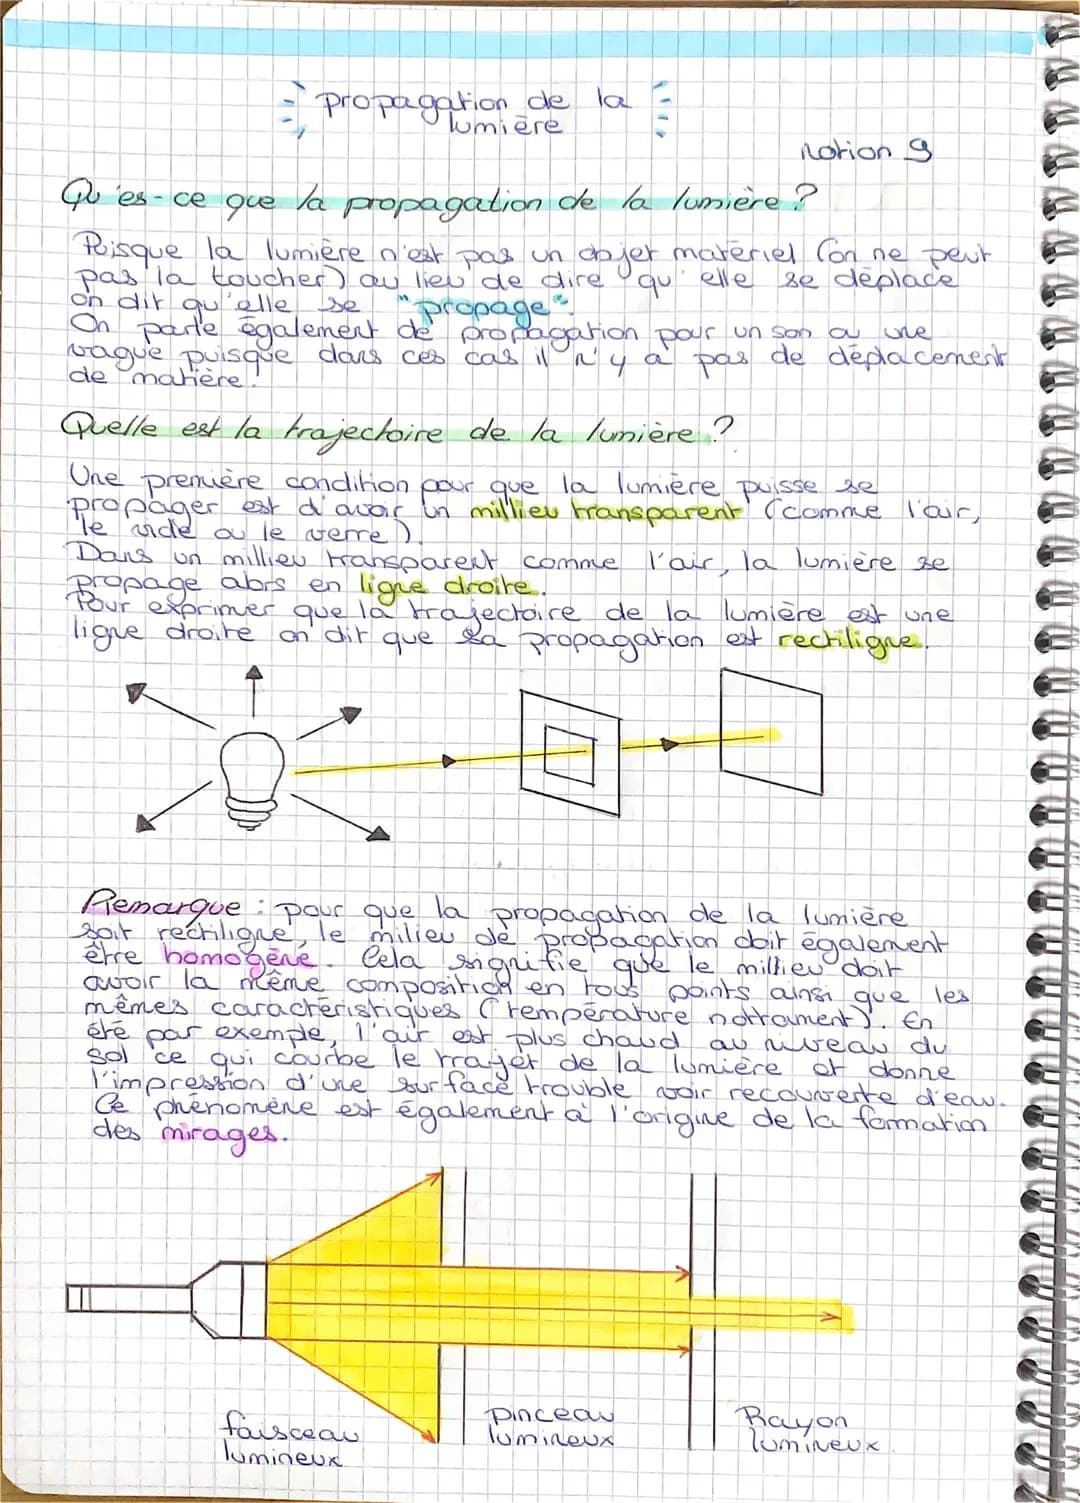 propagation de la
lumière
Notion 9
Qu'es-ce que la propagation de la lumière ?
Puisque la lumière n'est pas un objet matériel (on ne peut
pas la toucher) au lieu de dire qu'elle se déplace
on dit qu'elle se "propage".
On parle également de propagation pour un son ou une
vague puisque dans ces cas il n'y a pas de déplacement
de matière.
Quelle est la trajectoire de la lumière ?
Une première condition pour que la lumière puisse se
propager est d'avoir un millieu transparent (comme l'air,
le vide ou le verre).
Dans un millieu transparent comme l'air, la lumière se
propage alors en ligne droite.
Pour exprimer que la trajectoire de la lumière est une
ligne droite on dit que sa propagation est rectiligne.
Remarque : pour que la propagation de la lumière
soit rectiligne, le milieu de propagation doit également
être homogène. Cela signifie que le millieu doit
avoir la même composition en tous points ainsi que les
mêmes caractéristiques (température nottament). En
été par exemple, l'air est plus chaud au niveau du
sol ce qui courbe le trajet de la lumière et donne
l'impression d'une surface trouble voir recouverte d'eau.
Ce phénomène est également à l'origine de la formation
des mirages.
faisceau
lumineux
pinceau
lumineux
Rayon
lumineux.